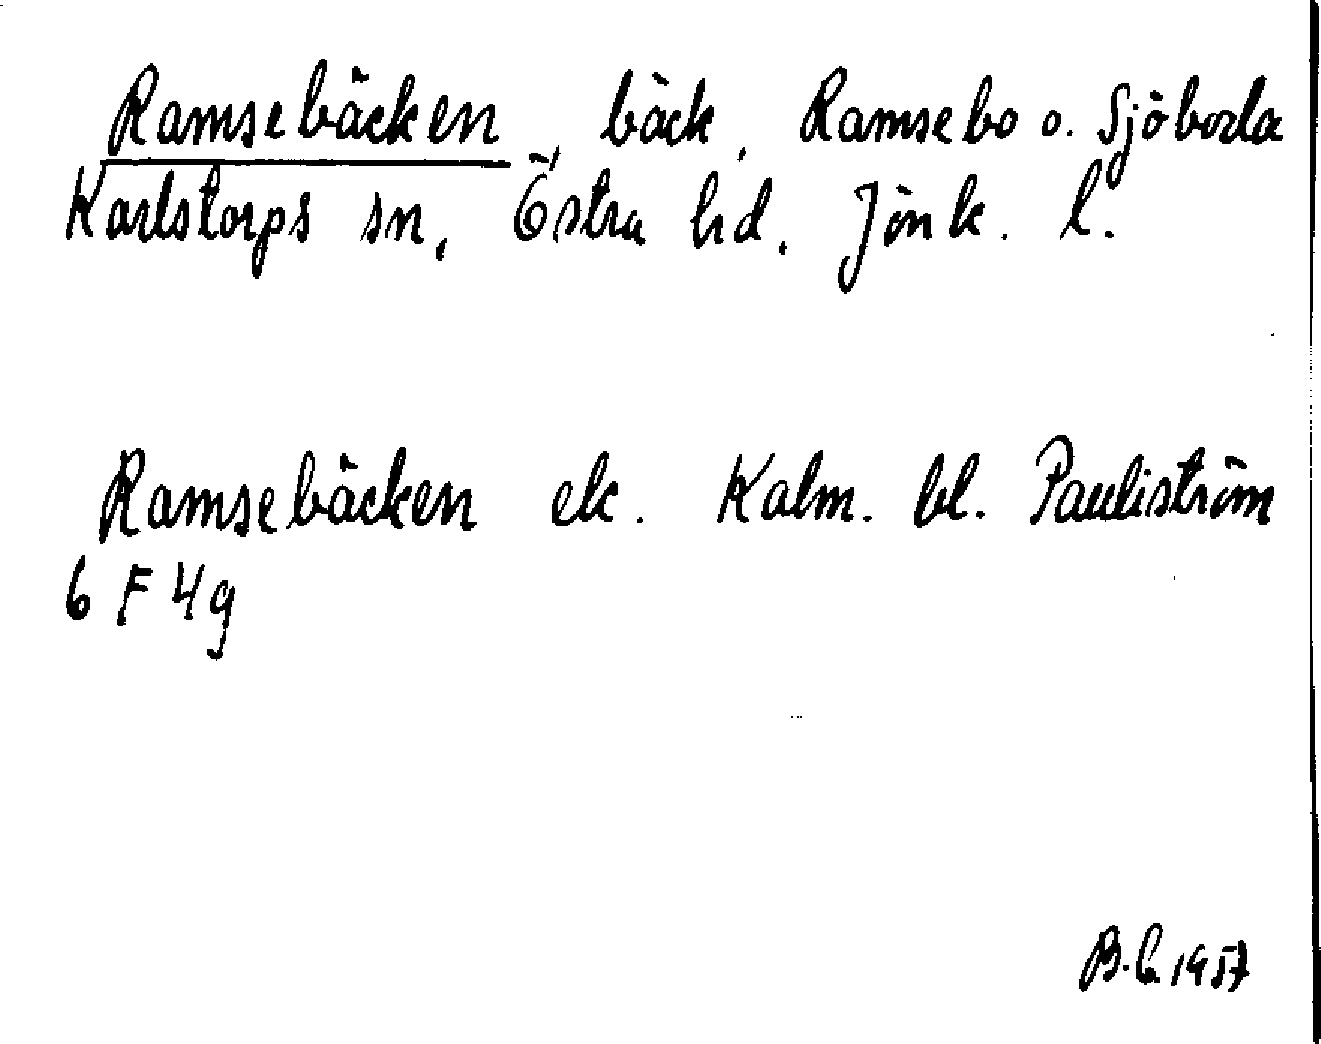 Ramsebäcken, bäck, Ramsebo o. Sjöboda
Karlstorps sn, Östra hd. Jönk. l.
Ramsebäcken ek. Kalm. bl. Pauliström
6 F 4g
B.L. 1957